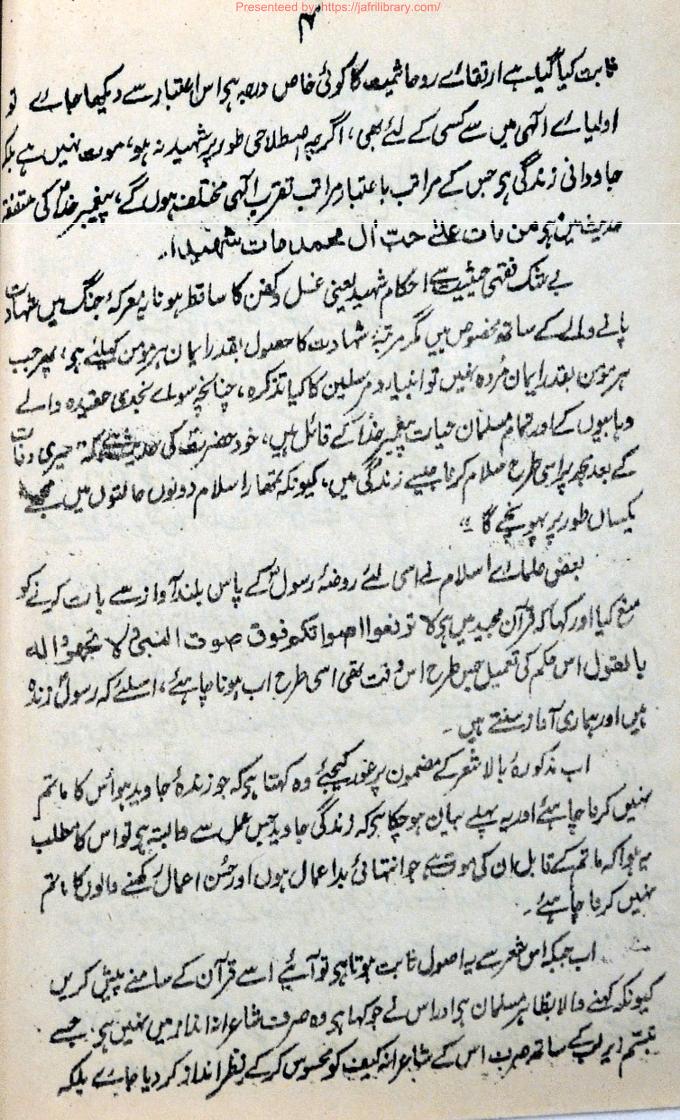 Presenteed by: https://jafrilibrary.com/
۴
ثابت کیا گیا ہے ارتقاے روحانیت کا کوئی خاص درجہ ہو اس اعتبار سے دیکھا جاے تو
اولیاے الٰہی میں سے کسی کے لئے بھی، اگرچہ اصطلاحی طور پر شہید نہ ہو، موت نہیں ہے بلکہ
جاودانی زندگی ہو جس کے مراتب باعتبار مراتب تقرب الٰہی مختلف ہوں گے، پیغمبر خدا کی متفقہ
حدیث میں ہو من مات علے حب ال محمد مات شھیدا۔
بے شک فقہی حیثیت سے احکام شہید یعنی غسل و کفن کا ساقط ہونا یہ معرکۂ جنگ میں شہادت
پانے والے کے ساتھ مخصوص ہیں مگر مرتبۂ شہادت کا حصول بقدر ایمان ہر مومن کیلئے ہو، پھر جب
ہر مومن بقدر ایمان مُردہ نہیں تو انبیاء و مرسلین کا کیا تذکرہ، چنانچہ سواے نجدی عقیدہ والے
وہابیوں کے اور تمام مسلمان حیات پیغمبر خدا کے قائل ہیں، خود حضرت کی حدیث ہے کہ "میری وفات
کے بعد مجھ پر اسی طرح سلام کرنا جیسے زندگی میں، کیونکہ تمہارا سلام دونوں حالتوں میں مجھے
یکساں طور پر پہونچے گا"
بعض علماے اسلام نے اسی لئے روضۂ رسول کے پاس بلند آواز سے بات کرنے کو
منع کیا اور کہا کہ قرآن مجید میں ہو لا ترفعوا اصواتکم فوق صوت النبی ولا تجھروا لہ
بالقول اس حکم کی تعمیل جس طرح اس وقت تھی اسی طرح اب ہونا چاہئے، اسلئے کہ رسول زندہ
ہیں اور ہماری آواز سنتے ہیں۔
اب مذکورۂ بالا شعر کے مضمون پر غور کیجئے وہ کہتا ہو کہ جو زندۂ جاوید ہو اُس کا ماتم
نہیں کرنا چاہئے اور یہ پہلے بیان ہو چکا ہو کہ زندگی جاوید حسن عمل سے وابستہ ہو تو اس کا مطلب
یہ ہوا کہ ماتم کے قابل ان کی موت ہے جو انتہائی بداعمال ہوں اور حُسن اعمال رکھنے والوں کا ماتم
نہیں کرنا چاہئے۔
اب جبکہ اس شعر سے یہ اصول ثابت ہوتا ہو تو آئیے اسے قرآن کے سامنے پیش کریں
کیونکہ کہنے والا بظاہر مسلمان ہو اور اس نے جو کہا ہو وہ صرف شاعرانہ انداز میں نہیں ہو جسے
تبسّم زیر لب کے ساتھ صرف اس کے شاعرانہ کیف کو محسوس کرکے نظر انداز کر دیا جاے بلکہ